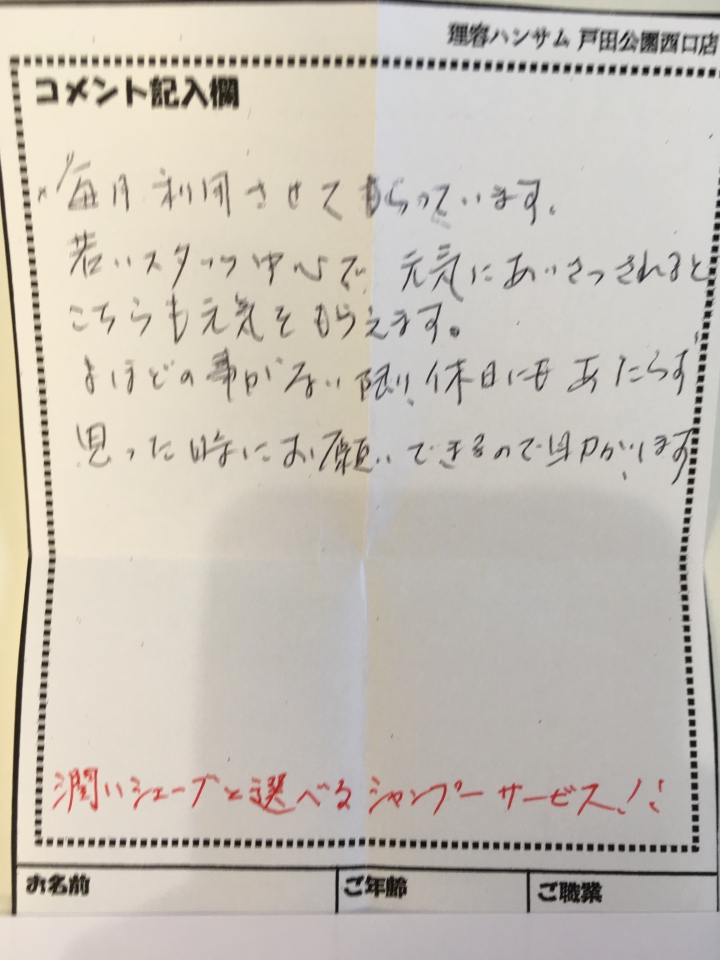 理容ハンサム 戸田公園西口店
コメント記入欄
毎月利用させてもらっています。
若いスタッフ中心で、元気にあいさつされると
こちらも元気をもらえます。
よほどの事がない限り、休日にもあたらず
思った時にお願いできるので助かります
潤いシェーブと選べるシャンプーサービス!!
お名前
ご年齢
ご職業